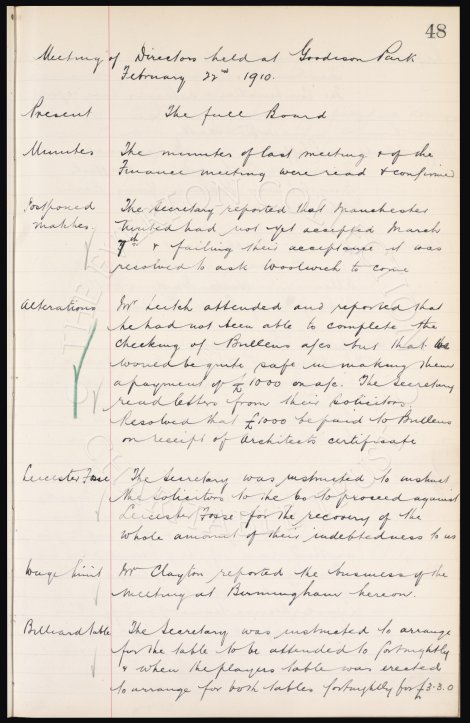 48
Meeting of Directors held at Goodison Park
February 22nd 1910.
Present The full Board
Minutes The minutes of last meeting & of the
Finance meeting were read & confirmed
Postponed The Secretary reported that Manchester
matches. United had not yet accepted March
7th & failing their acceptance it was
resolved to ask Woolwich to come
Alterations Mr Leitch attended and reported that
he had not been able to complete the
checking of Bullens a/cs but that we
would be quite safe in making them
a payment of £1000 on a/c. The Secretary
read letters from their Solicitors
Resolved that £1000 be paid to Bullens
on receipt of Architects certificate
Leicester Fosse The Secretary was instructed to instruct
the Solicitors to the Co to proceed against
Leicester Fosse for the recovery of the
whole amount of their indebtedness to us
Wage limit Mr Clayton reported the business of the
meeting at Birmingham hereon.
Billiard table The Secretary was instructed to arrange
for the table to be attended to fortnightly
& when the players table was erected
to arrange for both tables fortnightly for £3-3-0